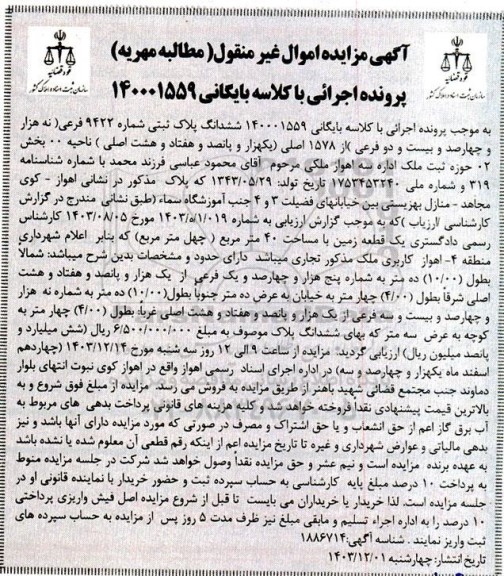 آگهی مزایده اموال غیر منقول( مطالبه مهریه)
پرونده اجرائی با کلاسه بایگانی ۱۴۰۰۰۱۵۵۹
قوه قضائیه
سازمان ثبت اسناد و املاک کشور
قوه قضائیه
سازمان ثبت اسناد و املاک کشور
به موجب پرونده اجرائی با کلاسه بایگانی ۱۴۰۰۰۱۵۵۹ ششدانگ پلاک ثبتی شماره ۹۴۲۲ فرعی( نه هزار
و چهارصد و بیست و دو فرعی )از ۱۵۷۸ اصلی (یکهزار و پانصد و هفتاد و هشت اصلی ) ناحیه ۰۰ بخش
۰۲ حوزه ثبت ملک اداره سه اهواز ملکی مرحوم آقای محمود عباسی فرزند محمد با شماره شناسنامه
۳۱۹ و شماره ملی ۱۷۵۳۴۵۳۲۴۰ تاریخ تولد: ۱۳۴۳/۰۵/۲۹ که پلاک مذکور در نشانی اهواز - کوی
مجاهد - منازل بهزیستی بین خیابانهای فضیلت ۳ و ۴ جنب آموزشگاه سماء (طبق نشانی مندرج در گزارش
کارشناسی /ارزیاب )که به موجب گزارش ارزیابی به شماره ۱۴۰۳/۵/۱/۰۱۹ مورخ ۱۴۰۳/۰۸/۰۵ کارشناس
رسمی دادگستری یک قطعه زمین با مساحت ۴۰ متر مربع ( چهل متر مربع) که بنابر اعلام شهرداری
منطقه ۴- اهواز کاربری ملک مذکور تجاری میباشد دارای حدود و مشخصات بدین شرح میباشد: شمالا
بطول (۱۰/۰۰) ده متر به شماره پنج هزار و چهارصد و یک فرعی از یک هزار و پانصد و هفتاد و هشت
اصلی شرقا بطول (۴/۰۰) چهار متر به خیابان به عرض ده متر جنوباً بطول(۱۰/۰۰) ده متر به شماره نه هزار
و چهارصد و بیست و سه فرعی از یک هزار و پانصد و هفتاد و هشت اصلی غرباً بطول (۴/۰۰) چهار متر به
کوچه به عرض سه متر که بهای ششدانگ پلاک موصوف به مبلغ ۶/۵۰۰/۰۰۰/۰۰۰ ریال (شش میلیارد و
پانصد میلیون ریال) ارزیابی گردید. مزایده از ساعت ۹ الی ۱۲ روز سه شنبه مورخ ۱۴۰۳/۱۲/۱۴ (چهاردهم
اسفند ماه یکهزار و چهارصد و سه) در اداره اجرای اسناد رسمی اهواز واقع در اهواز کوی نبوت انتهای بلوار
دماوند جنب مجتمع قضائی شهید باهنر از طریق مزایده به فروش می رسد. مزایده از مبلغ فوق شروع و به
بالاترین قیمت پیشنهادی نقداً فروخته خواهد شد و کلیه هزینه های قانونی پرداخت بدهی های مربوط به
آب برق گاز اعم از حق انشعاب و یا حق اشتراک و مصرف در صورتی که مورد مزایده دارای آنها باشد و نیز
بدهی مالیاتی و عوارض شهرداری و غیره تا تاریخ مزایده اعم از اینکه رقم قطعی آن معلوم شده یا نشده باشد
به عهده برنده مزایده است و نیم عشر و حق مزایده نقداً وصول خواهد شد شرکت در جلسه مزایده منوط
به پرداخت ۱۰ درصد مبلغ پایه کارشناسی به حساب سپرده ثبت و حضور خریدار یا نماینده قانونی او در
جلسه مزایده است. لذا خریدار یا خریداران می بایست تا قبل از شروع مزایده اصل فیش واریزی پرداختی
۱۰ درصد را به اداره اجراء تسلیم و مابقی مبلغ نیز ظرف مدت ۵ روز پس از مزایده به حساب سپرده های
ثبت واریز نمایند . شناسه آگهی:۱۸۸۶۷۱۴
تاریخ انتشار: چهارشنبه ۱۴۰۳/۱۲/۰۱